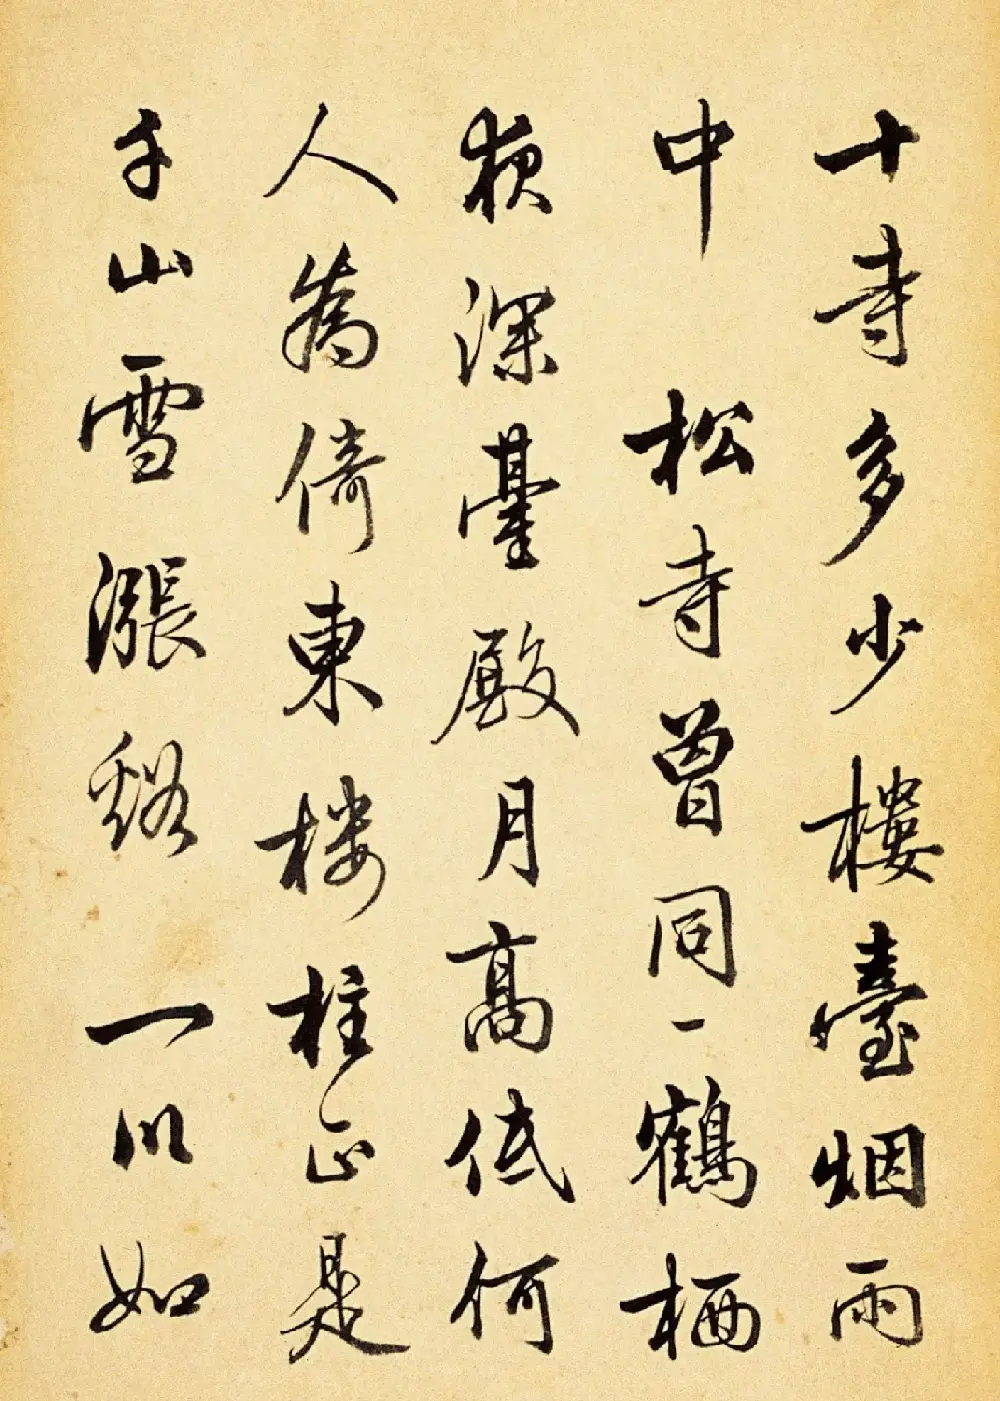 十寺多少樓臺烟雨
中 松寺曾同一鶴栖
夜深臺殿月高低何
人為倚東楼柱正是
千山雪漲谿 一川如